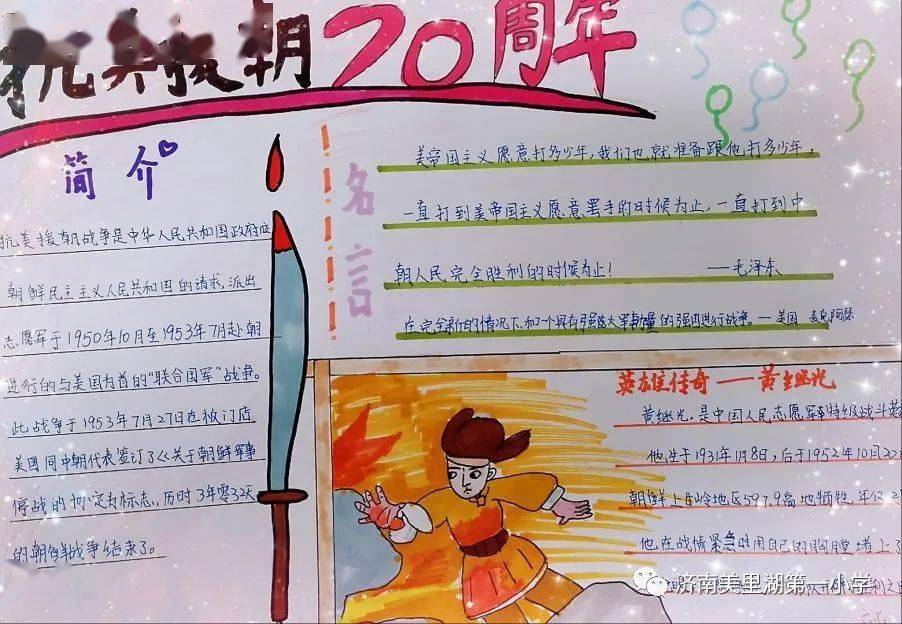 抗美援朝70周年
简介
抗美援朝战争是中华人民共和国政府应
朝鲜民主主义人民共和国的请求,派出
志愿军于1950年10月至1953年7月赴朝
进行的与美国为首的“联合国军”战争。
此战争于1953年7月27日在板门店
美国同中朝代表签订了《关于朝鲜军事
停战的协定为标志,历时3年零32天
的朝鲜战争结束了。
名言
美帝国主义愿意打多少年,我们也就准备跟他打多少年,
一直打到美帝国主义愿意罢手的时候为止,一直打到中
朝人民完全胜利的时候为止!——毛泽东
在完全新的情况下和一个具有强大军事力量的强国进行战争。—美国 麦克阿瑟
英雄传奇——黄继光
黄继光,是中国人民志愿军特级战斗英
他生于1931年1月8日,后于1952年10月20
朝鲜上甘岭地区597.9高地牺牲,年仅2
他在战情紧急时用自己的胸膛堵上了
济南美里湖第一小学